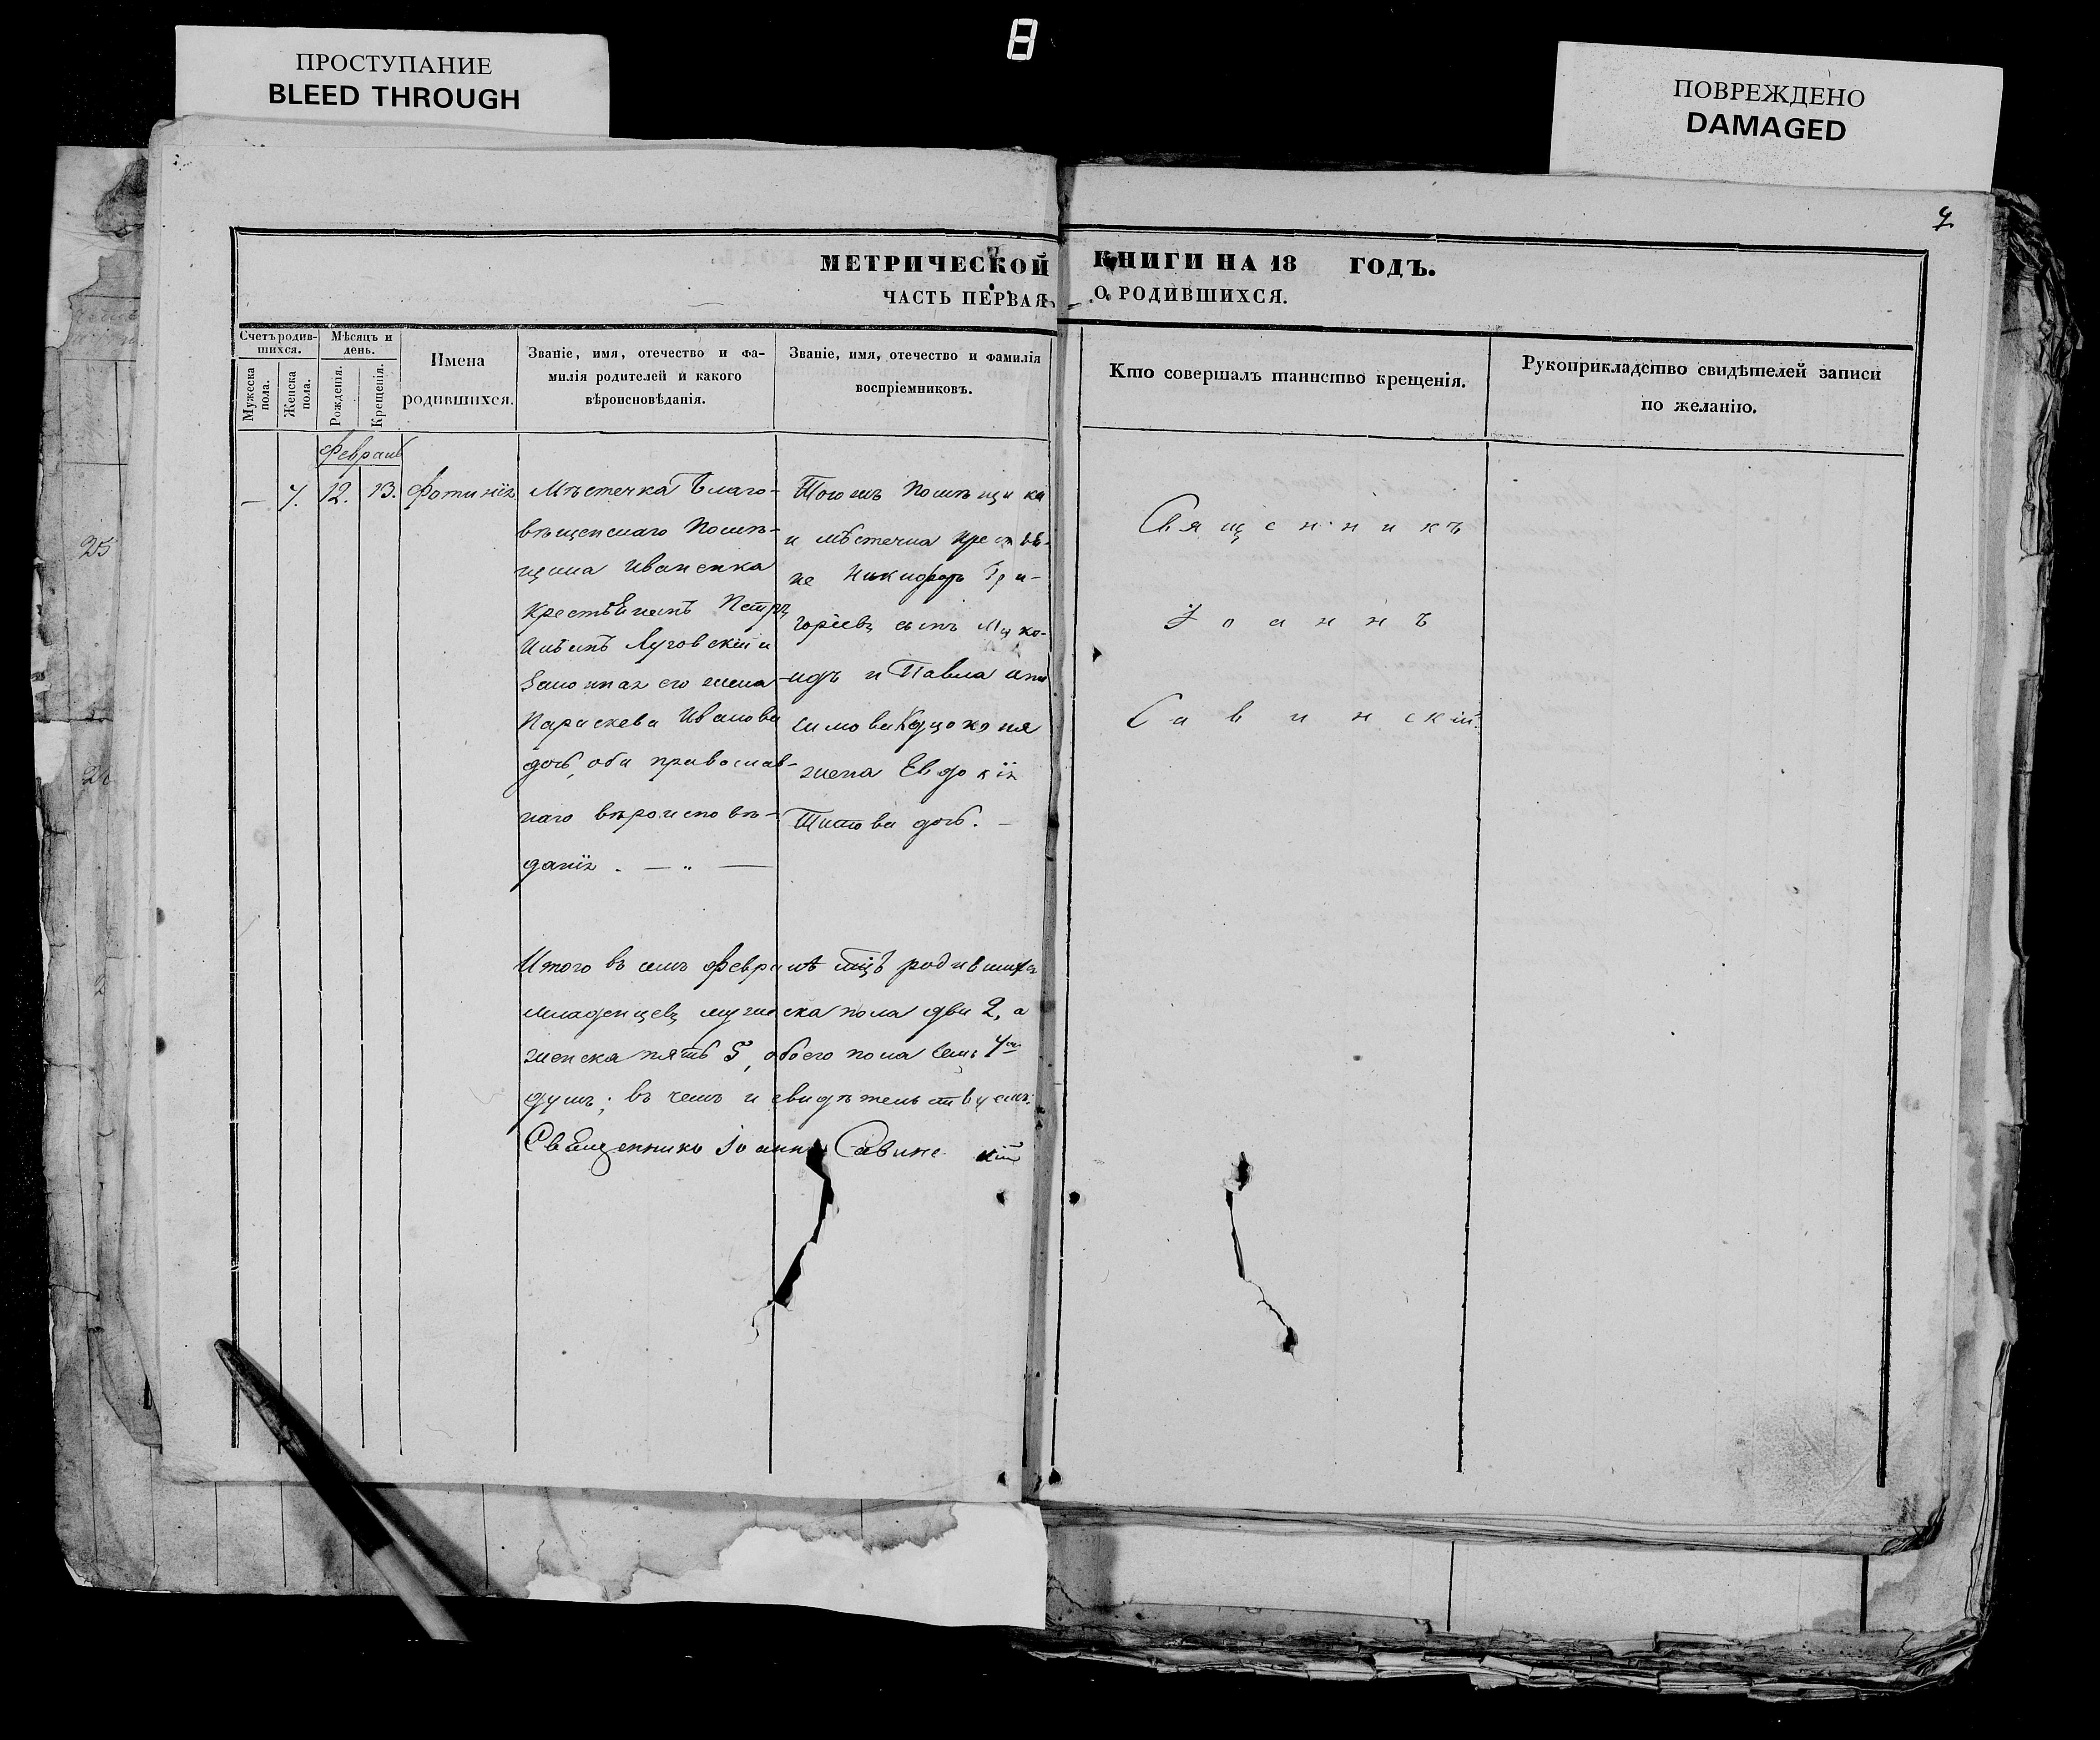 8
ПРОСТУПАНИЕ
BLEED THROUGH
ПОВРЕЖДЕНО
DAMAGED
МЕТРИЧЕСКОЙ КНИГИ НА 18 ГОДЪ.
ЧАСТЬ ПЕРВАЯ, О РОДИВШИХСЯ.
Счетъ родив-
шихся.
Мужеска
пола.
Женска
пола.
Мѣсяцъ и
день.
Рожденія.
Крещенія.
Имена
родившихся.
Званіе, имя, отечество и фа-
милія родителей и какого
вѣроисновѣданія.
Званіе, имя, отечество и фамилія
воспріемниковъ.
Кто совершалъ таинство крещенія.
Рукоприкладство свидѣтелей записи
по желанію.
Февраль
— 7. 12. 13. Фотинія
Мѣстечка Благо-
вѣщенскаго Помѣ-
щика Иваненка
Крестьянинъ Петръ
Ильинъ Луговскій и
Законная его жена
Параскева Иванова
дочь, оба православ-
наго вѣроисповѣ-
данія.
Тогожъ Помѣщика
и мѣстечка крестья-
не Никифоръ Гри-
горіевъ сынъ
и Павла
жена Евдокія
Титова дочь.
Священникъ
Іоаннъ
Савинскій
Итого въ семъ Февралѣ мцѣ родившихся
младенцевъ мужеска пола два 2, а
женска пять 5, обоего пола семь 7
душъ; въ чемъ и свидѣтельствуемъ:
Священникъ Іоаннъ Савинскій
25
2